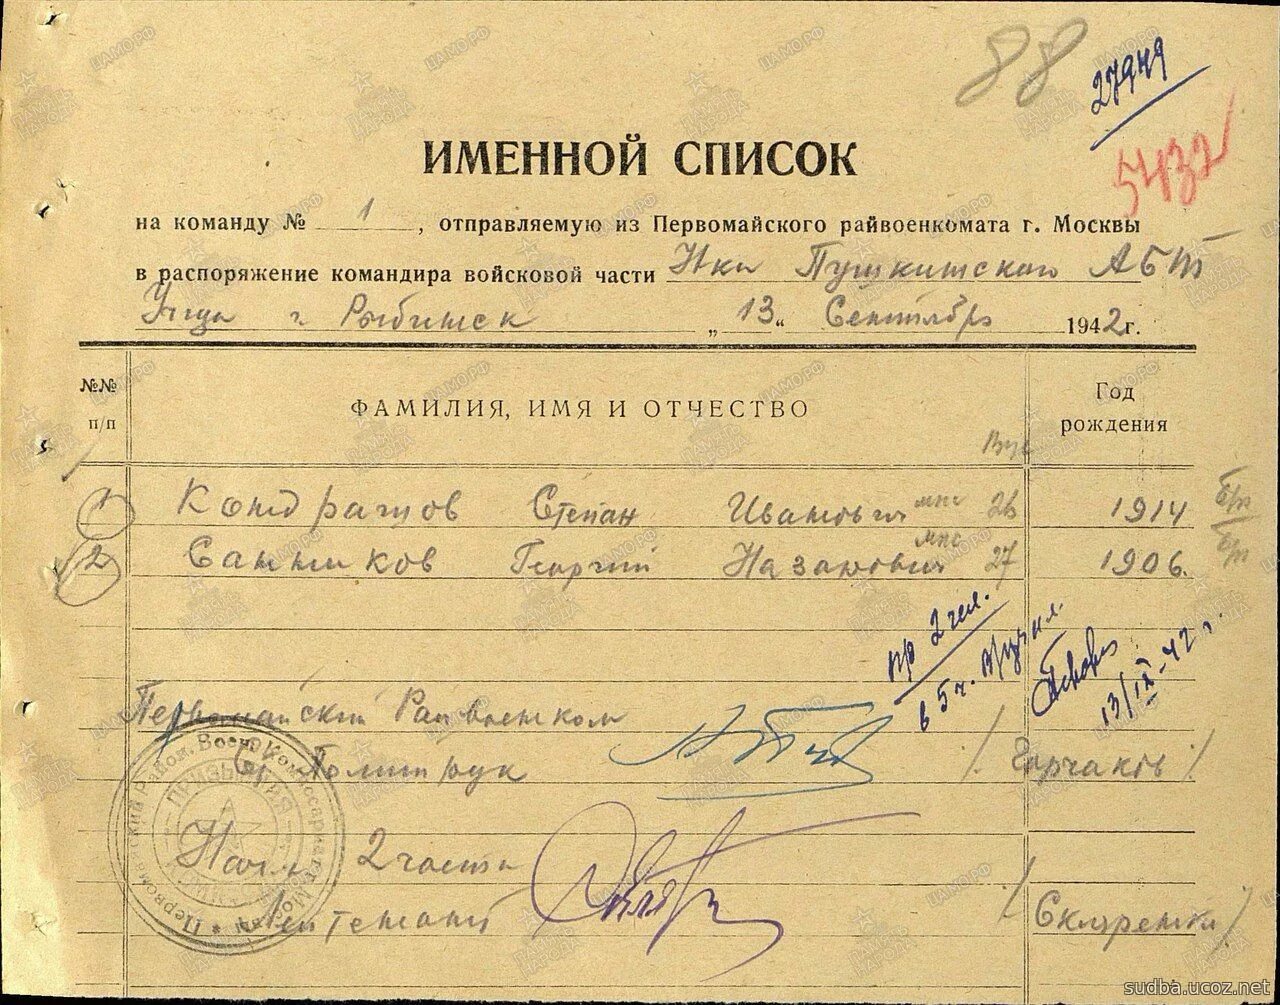 88
27949
5432
ИМЕННОЙ СПИСОК
на команду № 1, отправляемую из Первомайского райвоенкомата г. Москвы
в распоряжение командира войсковой части Нка Пушкинского АБТ
Уч-ща г. Рыбинск „13“ Сентября 1942 г.
№№ п/п
ФАМИЛИЯ, ИМЯ И ОТЧЕСТВО
Вус
Год рождения
1 Кондрашов Степан Иванович мпс 26 1914 б/п
2 Санников Георгий Назарович мпс 27 1906. б/п
пр 2 чел.
в 5 ч.
13/IX-42 г.
Первомайский Райвоенком
Ст Политрук / Горчаков /
Нач 2 части
Лейтенант / Скляренко /
Первомайский Район. Воен. Комиссариат г. Москвы
ЦАМО.РФ
ПАМЯТЬ НАРОДА
sudba.ucoz.net